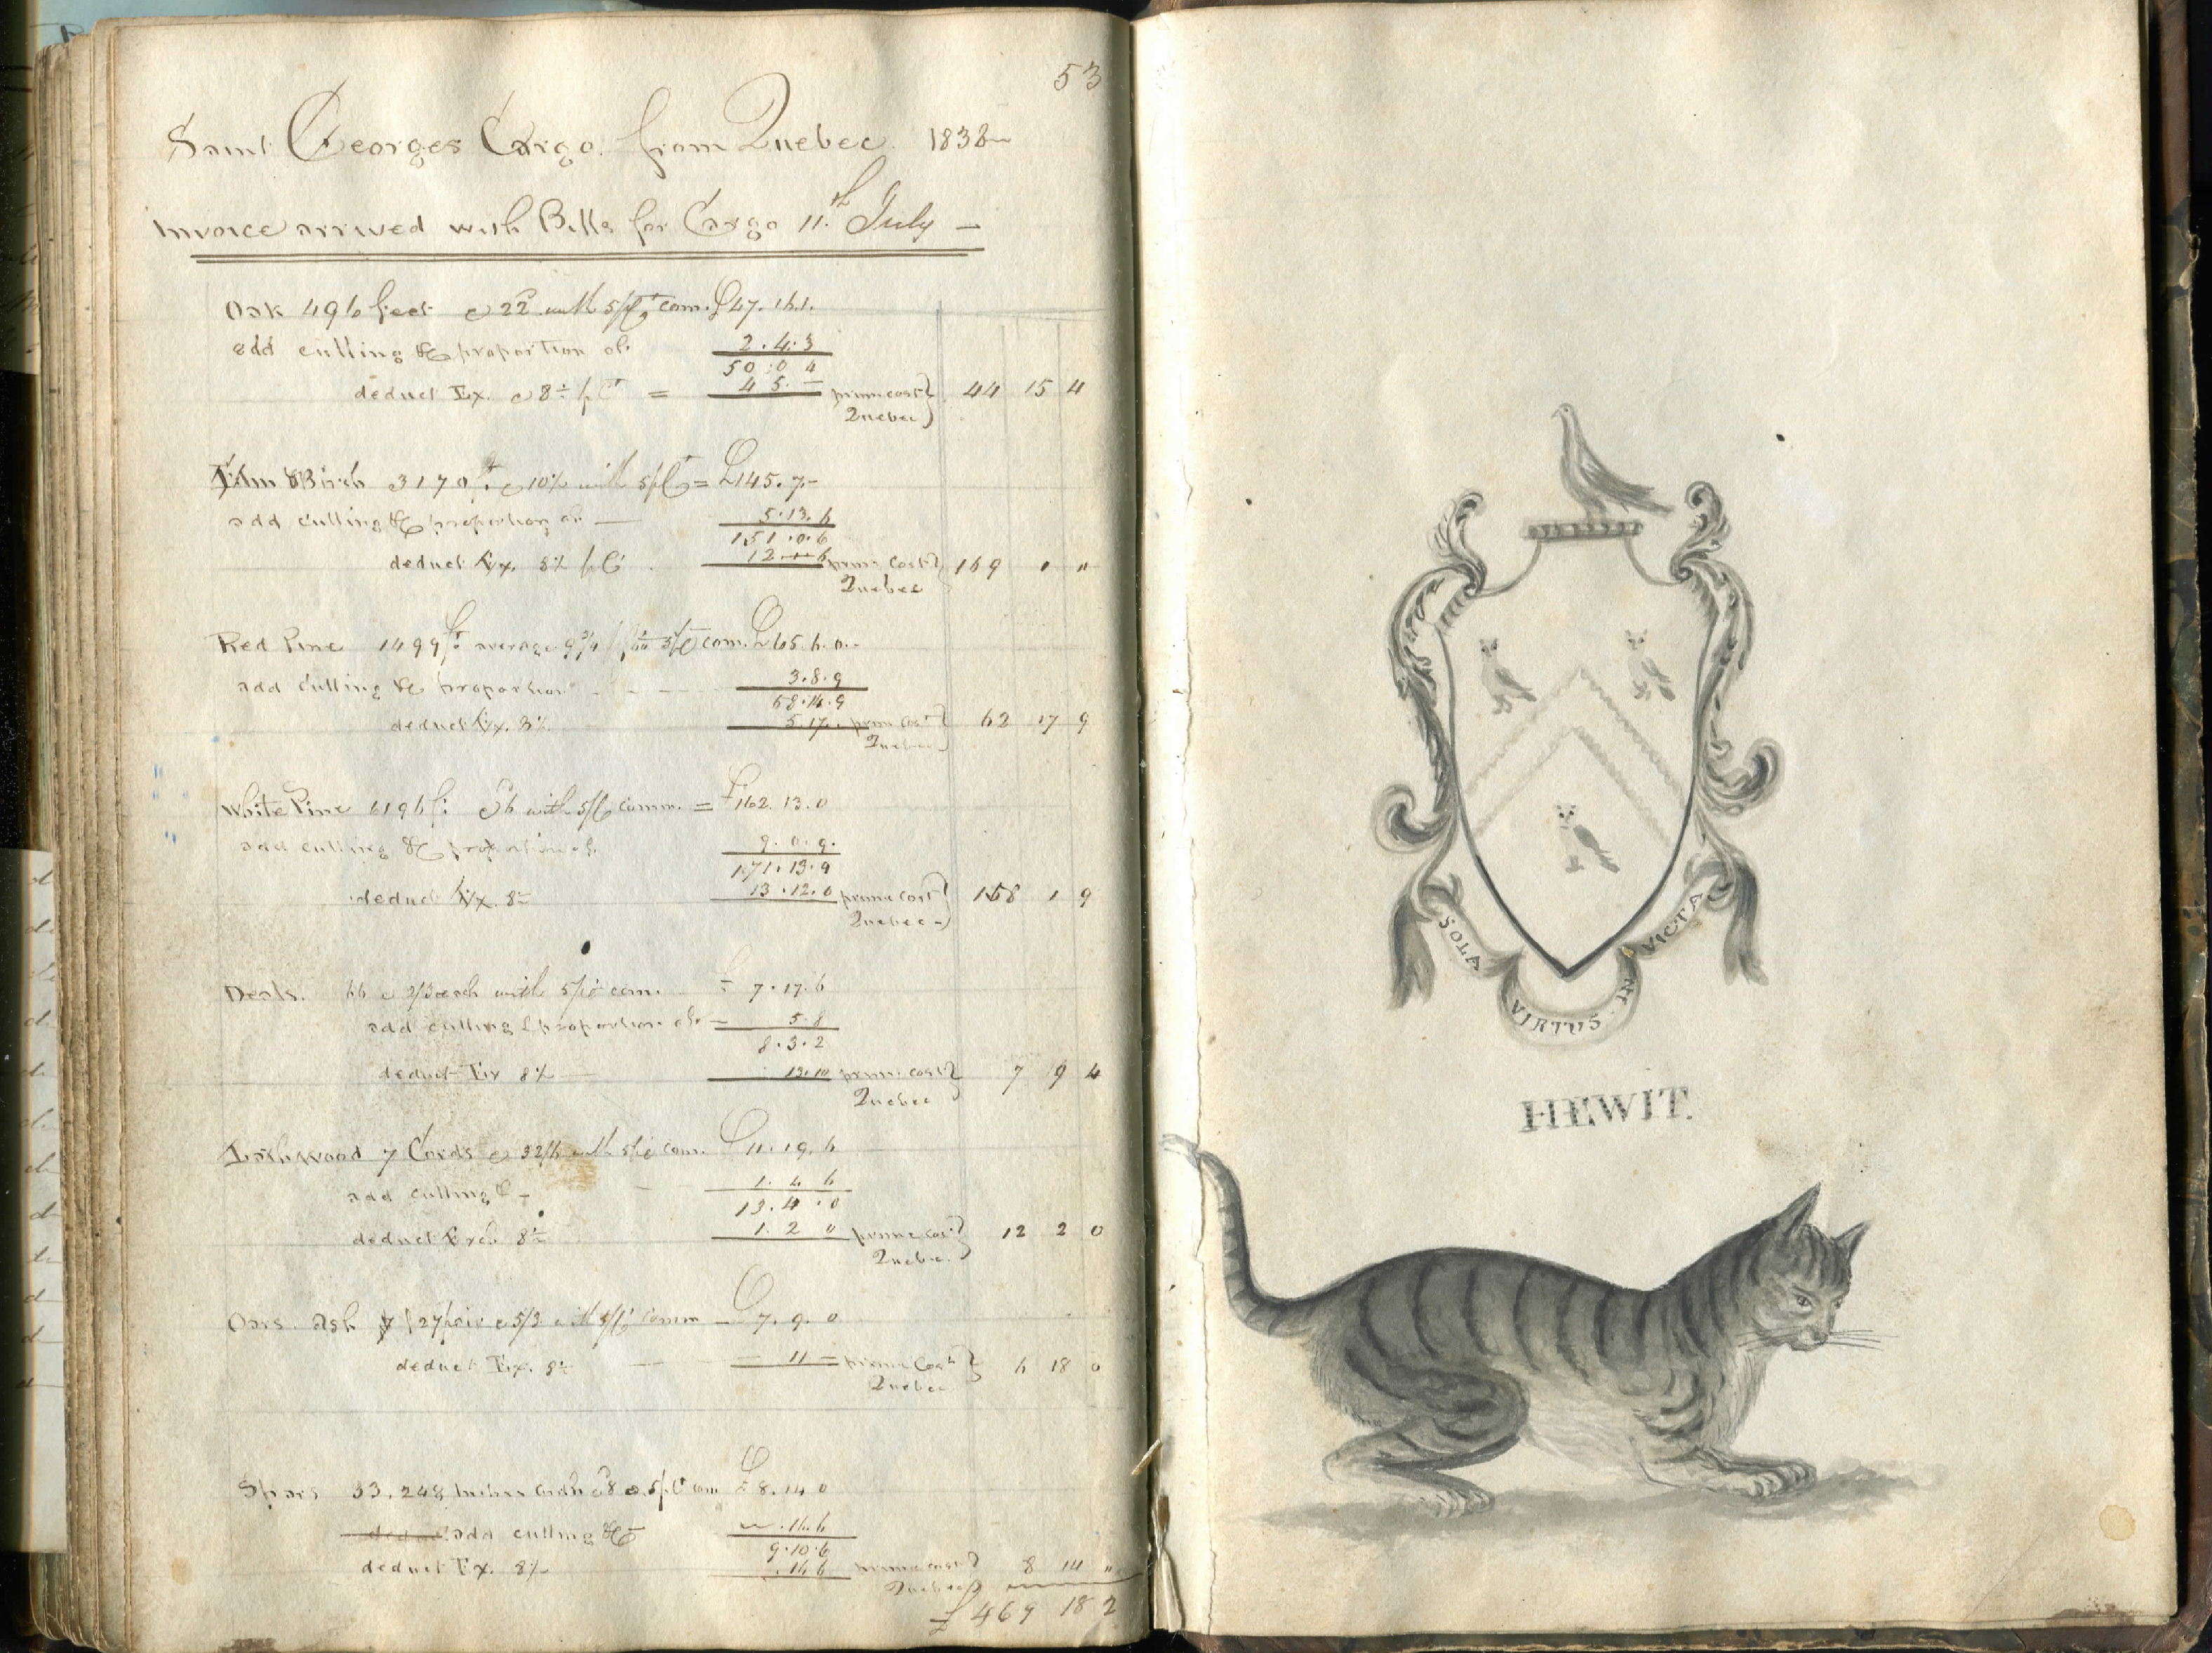 53
Saint Georges Cargo. from Quebec. 1838
Invoice arrived with Bills for Cargo 11.th July —
Oak 496 feet @ 22 with 5 p Ct com. £47.16.1.
add culling &c proportion of.
2.4.3
50.0 4
deduct Ex. @ 8 p Ct = 4 5. —
prime cost Quebec } 44 15 4
Elm & Birch 3170 ft @ 10½ with 5 p Ct = £145.7.-
add culling &c proportion of. —
5.13.6
151.0.6
deduct Ex. 8% p Ct.
prime Cost Quebec } 139 " "
Red Pine 1499 ft average com. £65.6.0.-
add culling &c proportion
3.8.9
68.14.9
deduct Ex. 8%
5 17. prime Cost Quebec } 62 17 9
White Pine 6196 ft @ 6 with 5 p Ct comm. = £162.13.0
add culling &c proportion of.
9.0.9.
171.13.9
deduct Ex. 8%
13.12.0 prime cost Quebec } 158 1 9
Deals. 66 @ 2/3 each with 5 p Ct com. £7.17.6
add culling & proportion of —
5.8
8.3.2
deduct Ex 8% —
13.10 prime cost Quebec } 7 9 4
Lathwood 7 Cords @ 32/6 with 5 p Ct com. £11.19.6
add culling & —
1.4 6
13.4.0
deduct Exc. 8%
1.2 0 prime cost Quebec } 12 2 0
Oars. Ash 27 pair @ 5/3 with 5 p Ct comm — £7.9.0
deduct Ex. 8%
— 11 — prime Cost Quebec } 6 18 0
Spars 33. 248 Inches @ 8 @ 5 p Ct com £8.14 0
add culling &c
.16.6
9.10.6
deduct Ex. 8%
.16 6 prime cost Quebec } 8 14 "
£469 18 2
SOLA VIRTUS INVICTA
HEWIT.